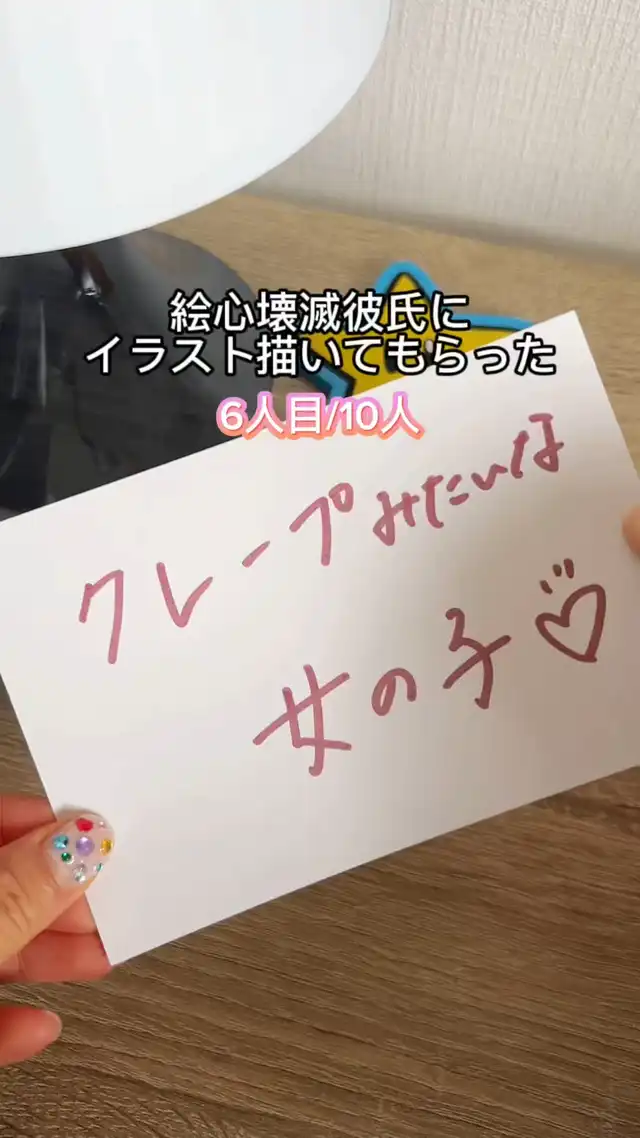 絵心壊滅彼氏に
イラスト描いてもらった
6人目/10人
クレープみたいな
女の子♡